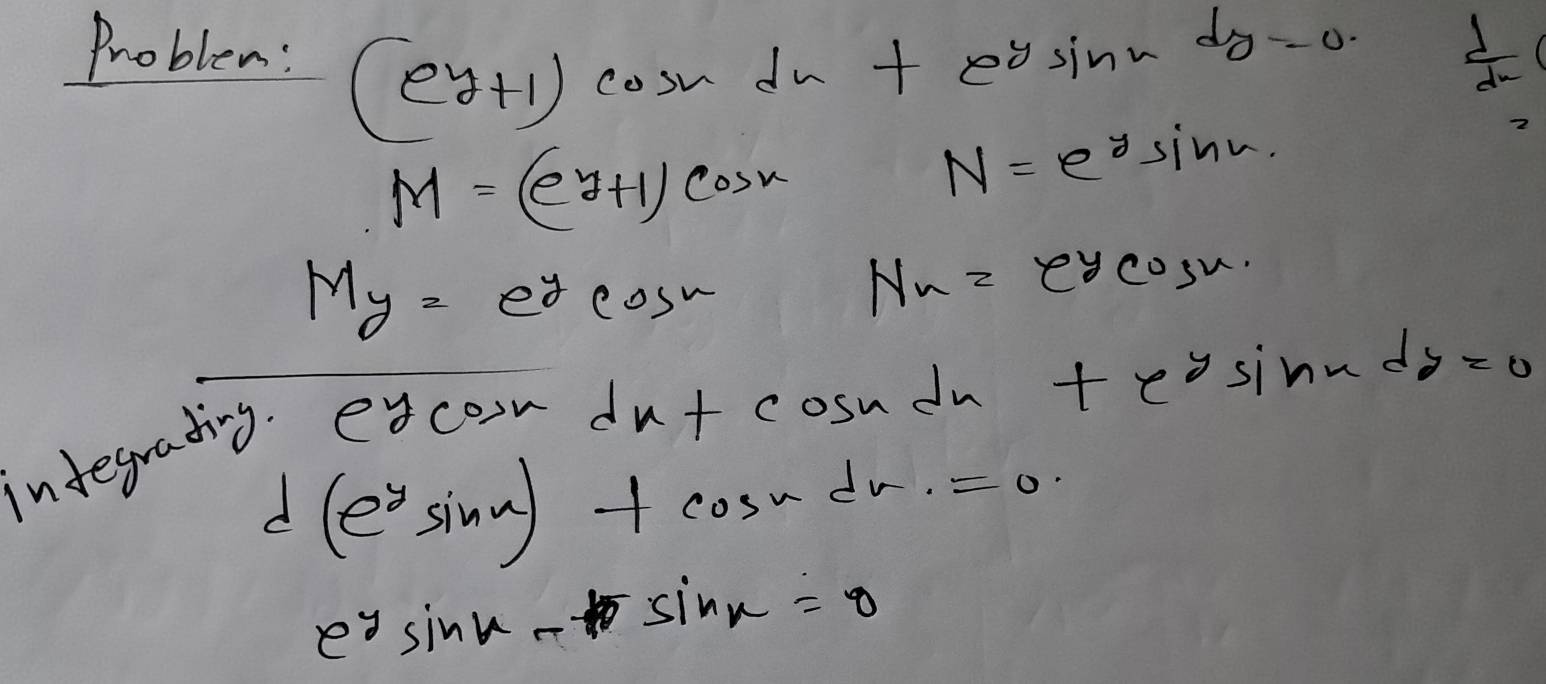 Problem: (e^y+1) cosx dx + e^y sinx dy = 0. d/dx (
=
M = (e^y+1) cosx N = e^y sinx.
My = e^y cosx Nx = e^y cosx.
integrating. e^y cosx dx + cosx dx + e^y sinx dy = 0
d (e^y sinx) + cosx dx. = 0.
e^y sinx - sinx = 0